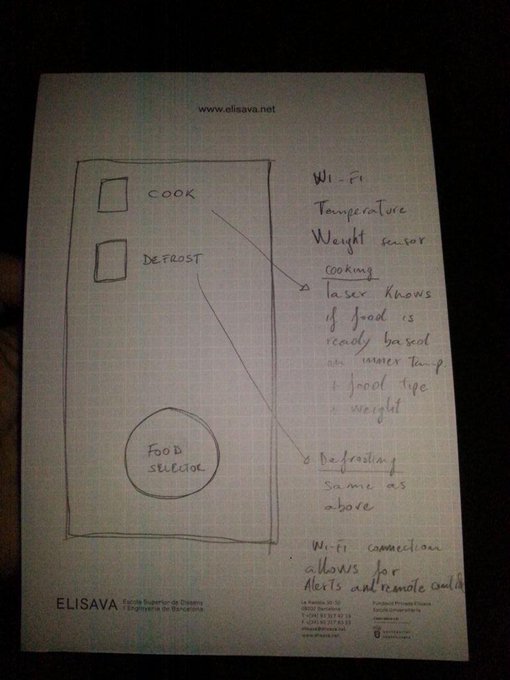 www.elisava.net
COOK
DEFROST
FOOD
SELECTOR
Wi-Fi
Temperature
Weight sensor
cooking
laser knows
if food is
ready based
on inner Temp
+ food type
+ weight
Defrosting
same as
above
Wi-Fi connection
allows for
Alerts and remote control
ELISAVA
Escola Superior de Disseny
i Enginyeria de Barcelona
La Rambla 30-32
08002 Barcelona
www.elisava.net
Fundació Privada Elisava
Escola Universitària